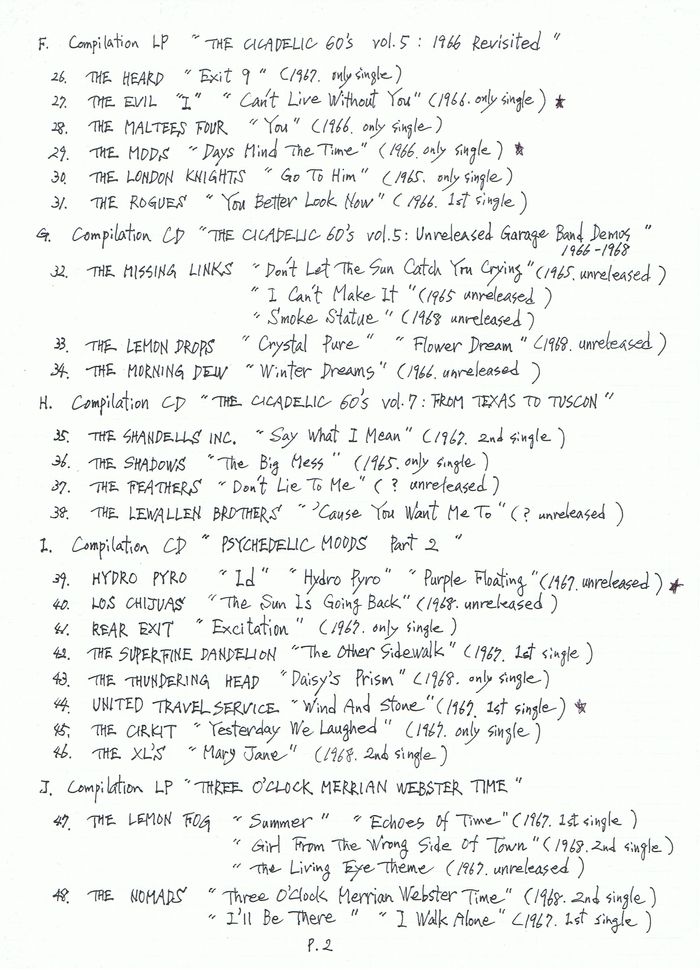 F. Compilation LP "THE CICADELIC 60's vol.5 : 1966 Revisited"
26. THE HEARD "Exit 9" (1967. only single)
27. THE EVIL "I" "Can't Live Without You" (1966. only single) ★
28. THE MALTEES FOUR "You" (1966. only single)
29. THE MODS "Days Mind The Time" (1966. only single) ★
30. THE LONDON KNIGHTS "Go To Him" (1965. only single)
31. THE ROGUES "You Better Look Now" (1966. 1st single)
G. Compilation CD "THE CICADELIC 60's vol.5: Unreleased Garage Band Demos"
1966-1968
32. THE MISSING LINKS "Don't Let The Sun Catch You Crying" (1965. unreleased)
"I Can't Make It" (1965 unreleased)
"Smoke Statue" (1968 unreleased)
33. THE LEMON DROPS "Crystal Pure" "Flower Dream" (1968. unreleased)
34. THE MORNING DEW "Winter Dreams" (1966. unreleased)
H. Compilation CD "THE CICADELIC 60's vol.7: FROM TEXAS TO TUSCON"
35. THE SHANDELLS INC. "Say What I Mean" (1967. 2nd single)
36. THE SHADOWS "The Big Mess" (1965. only single)
37. THE FEATHERS "Don't Lie To Me" (? unreleased)
38. THE LEWALLEN BROTHERS "'Cause You Want Me To" (? unreleased)
I. Compilation CD "PSYCHEDELIC MOODS Part 2"
39. HYDRO PYRO "Id" "Hydro Pyro" "Purple Floating" (1967. unreleased) ★
40. LOS CHIJUAS "The Sun Is Going Back" (1968. unreleased)
41. REAR EXIT "Excitation" (1967. only single)
42. THE SUPERFINE DANDELION "The Other Sidewalk" (1967. 1st single)
43. THE THUNDERING HEAD "Daisy's Prism" (1968. only single)
44. UNITED TRAVEL SERVICE "Wind And Stone" (1967. 1st single) ★
45. THE CIRKIT "Yesterday We Laughed" (1967. only single)
46. THE XL'S "Mary Jane" (1968. 2nd single)
J. Compilation LP "THREE O'CLOCK MERRIAN WEBSTER TIME"
47. THE LEMON FOG "Summer" "Echoes Of Time" (1967. 1st single)
"Girl From The Wrong Side Of Town" (1968. 2nd single)
"The Living Eye Theme (1967. unreleased)
48. THE NOMADS "Three O'Clock Merrian Webster Time" (1968. 2nd single)
"I'll Be There" "I Walk Alone" (1967. 1st single)
P.2